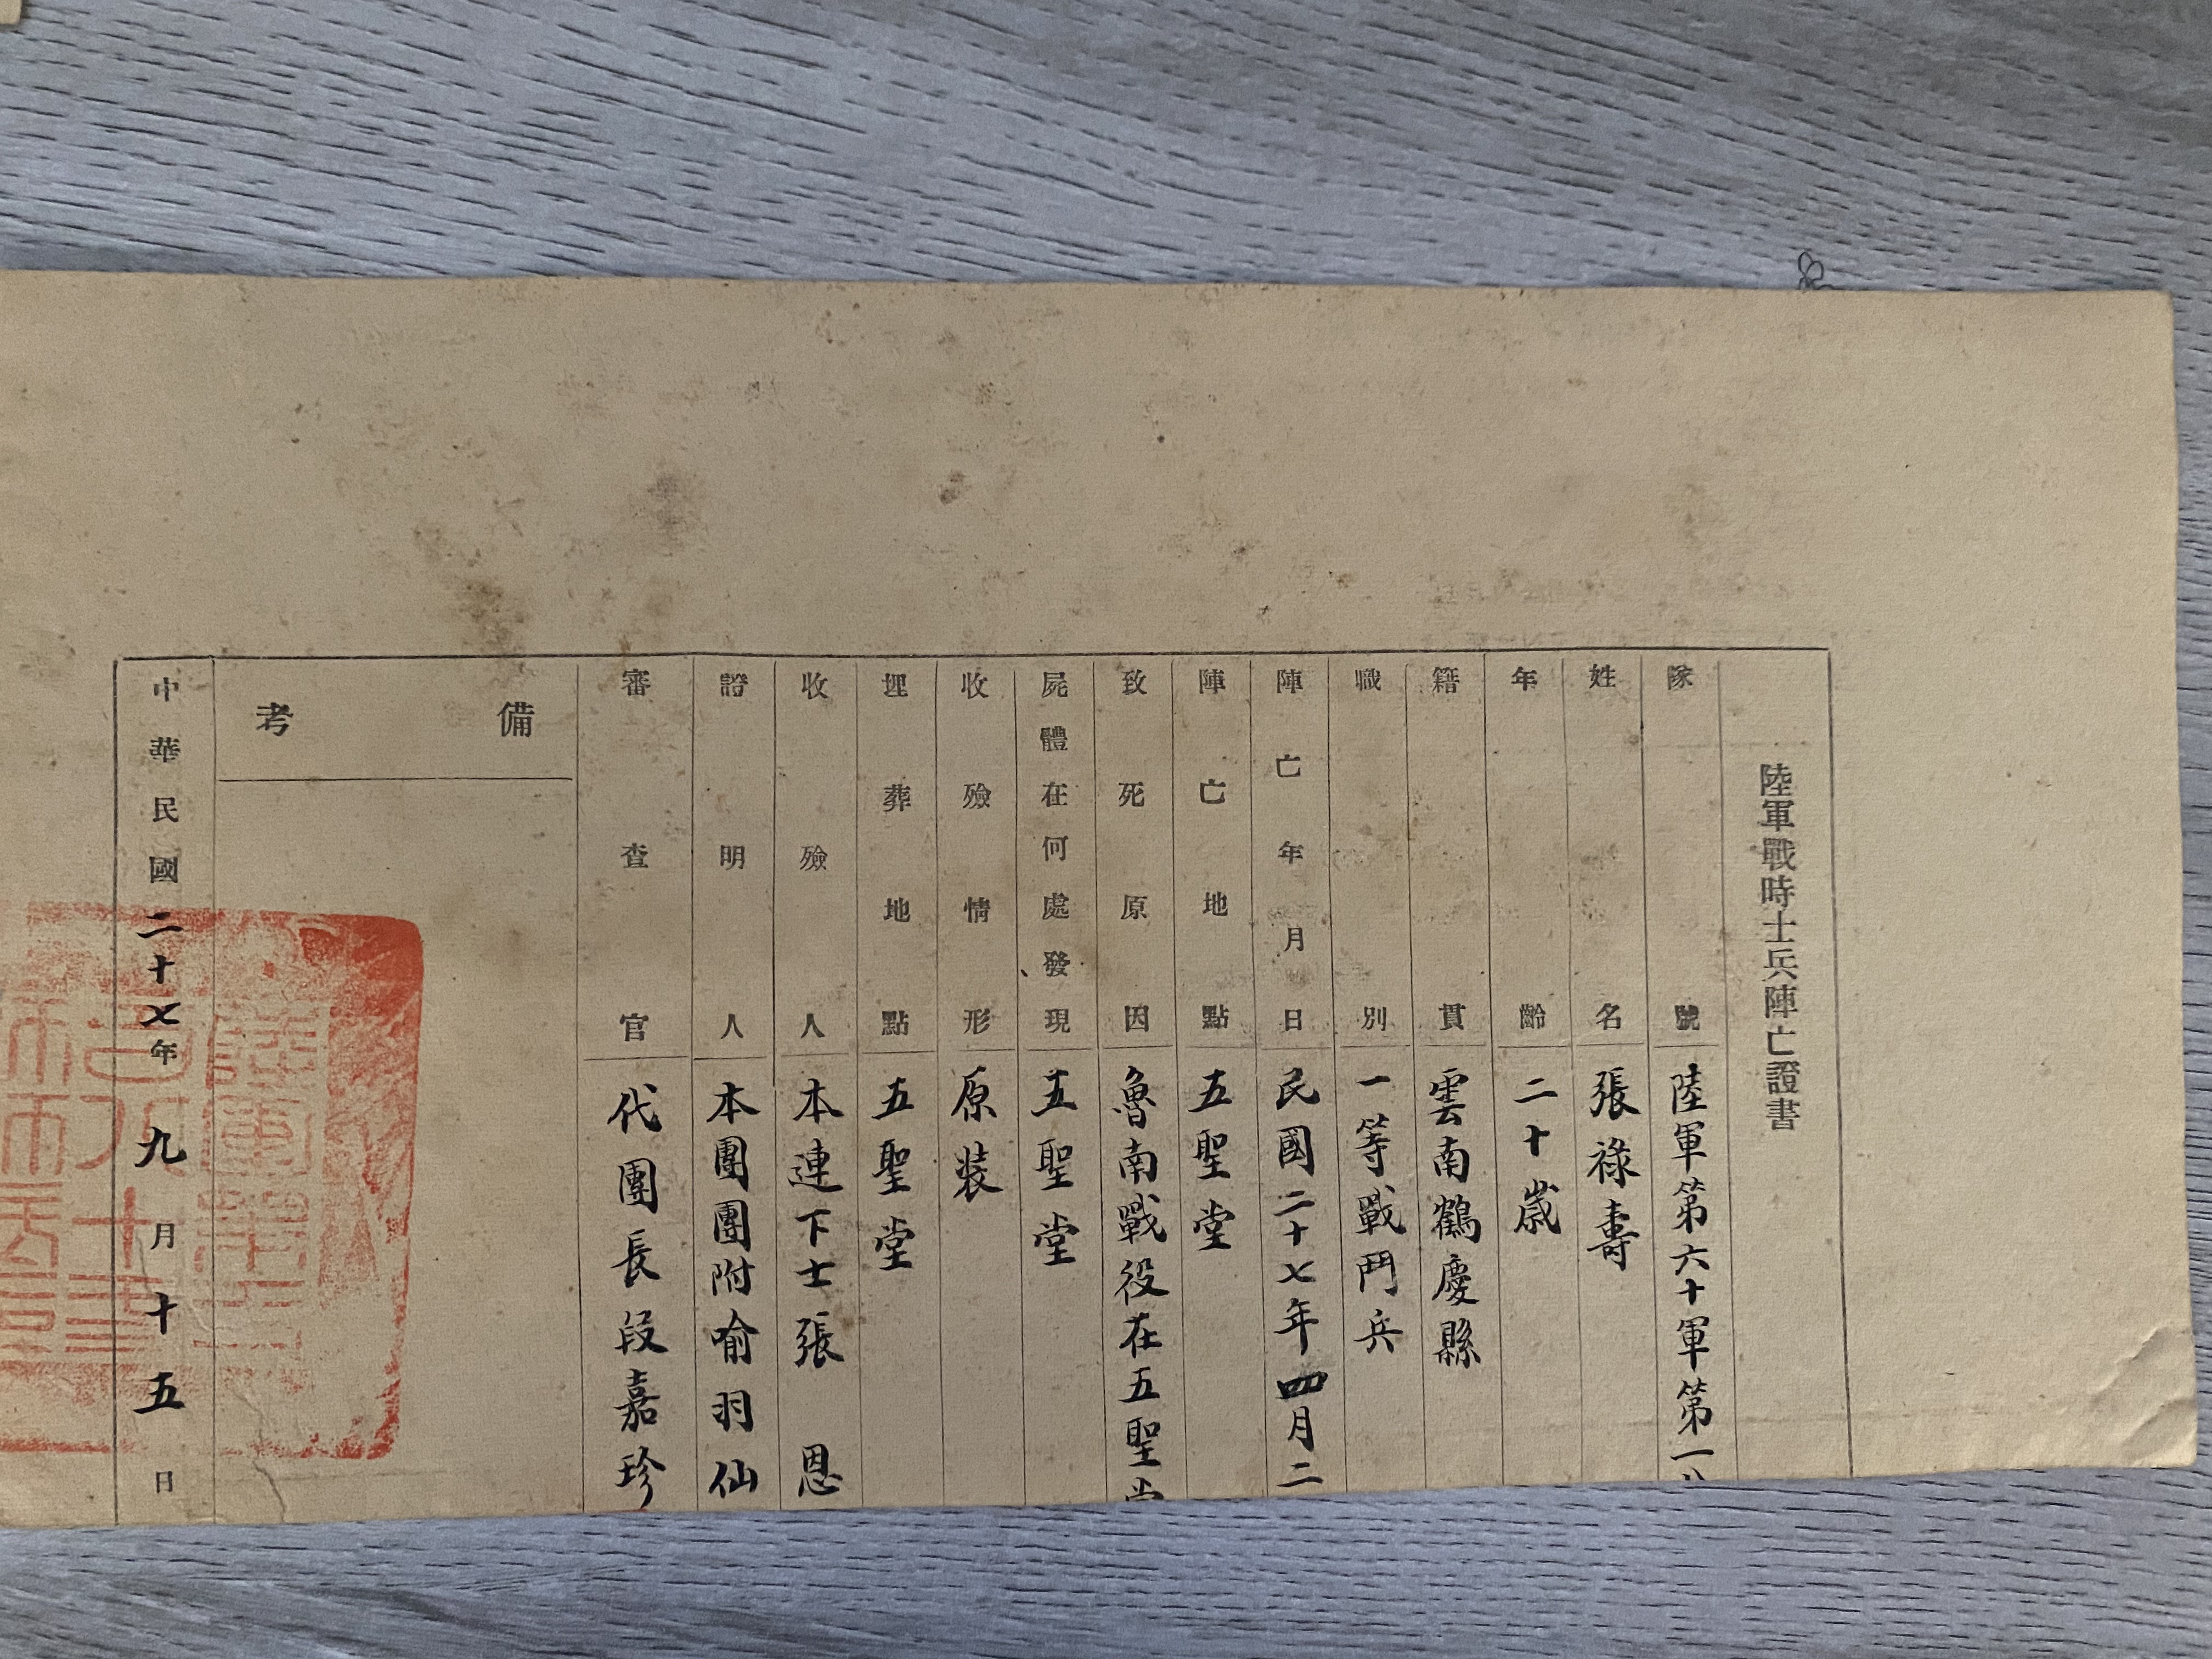 陸軍戰時士兵陣亡證書
隊號 陸軍第六十軍第一八
姓名 張祿壽
年齡 二十歲
籍貫 雲南鶴慶縣
職別 一等戰鬥兵
陣亡年月日 民國二十七年四月二
陣亡地點 五聖堂
致死原因 魯南戰役在五聖堂
屍體在何處發現 五聖堂
收殮情形 原裝
埋葬地點 五聖堂
收殮人 本連下士張恩
證明人 本團團附喻羽仙
審查官 代團長段嘉珍
備考
中華民國二十七年九月十五日